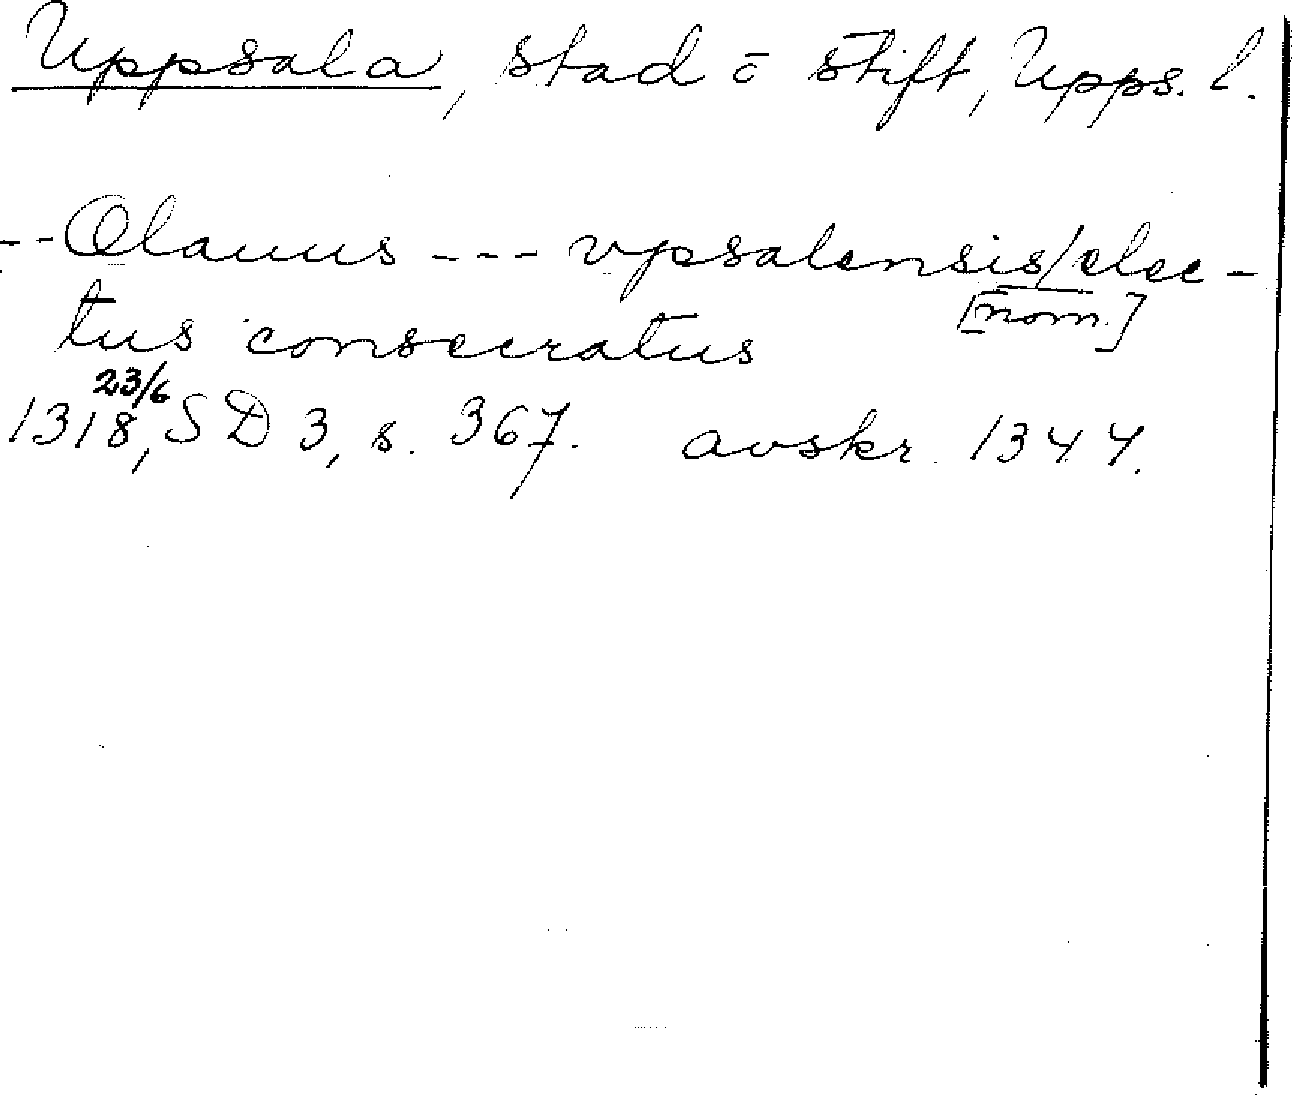 Uppsala, stad o stift, Upps. l.
-- Olauus --- vpsalensis/elec-
[nom.]
tus consecratus
23/6
1318, SD 3, s. 367. avskr. 1344.